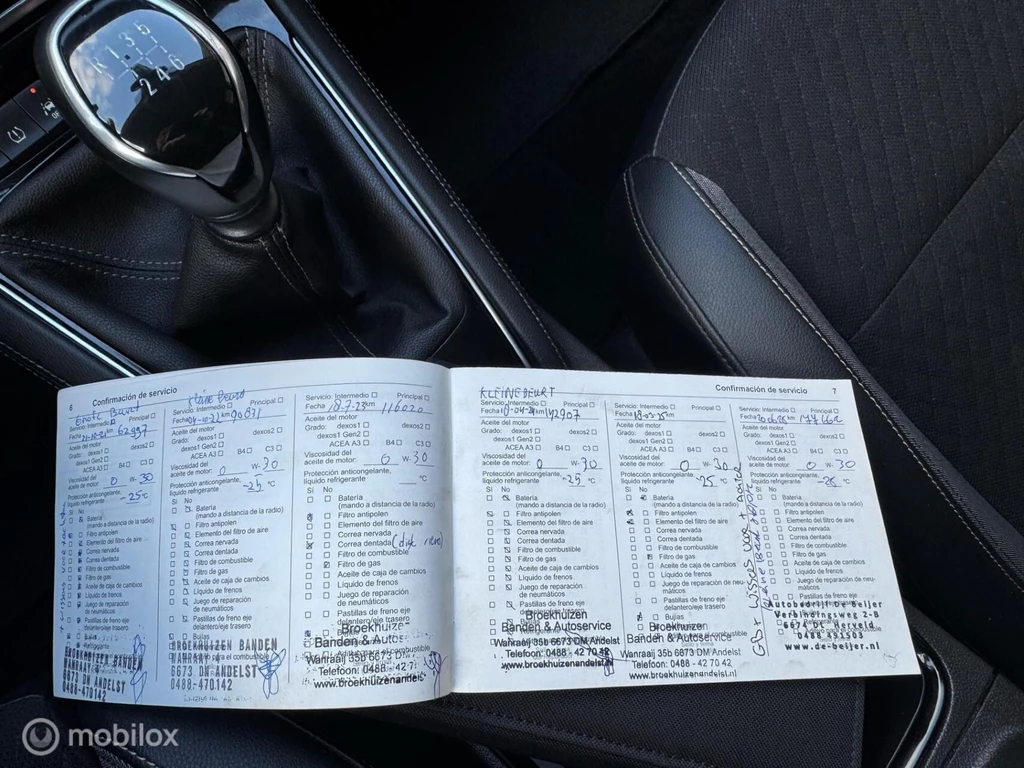 R 1 3 5
2 4 6
OFF
6
Confirmación de servicio
Grote Beurt
Servicio: Intermedio Principal
62997
Aceite del motor
Grado: dexos1 dexos2
dexos1 Gen2
ACEA A3 B4 C3
Viscosidad del
aceite de motor: 0 W- 30
Protección anticongelante,
líquido refrigerante -25 °C
Sí No
Batería
(mando a distancia de la radio)
Filtro antipolen
Elemento del filtro de aire
Correa nervada
Correa dentada
Filtro de combustible
Filtro de gas
Aceite de caja de cambios
Líquido de frenos
Juego de reparación
de neumáticos
Pastillas de freno eje
delantero/eje trasero
Bujías
BROEKHUIZEN BANDEN
6673 DM ANDELST
0488-470142
Kleine Beurt
Servicio: Intermedio Principal
Fecha 04-10-22 km 90631
Aceite del motor
Grado: dexos1 dexos2
dexos1 Gen2
ACEA A3 B4 C3
Viscosidad del
aceite de motor: 0 W- 30
Protección anticongelante,
líquido refrigerante -25 °C
Sí No
Batería
(mando a distancia de la radio)
Filtro antipolen
Elemento del filtro de aire
Correa nervada
Correa dentada
Filtro de combustible
Filtro de gas
Aceite de caja de cambios
Líquido de frenos
Juego de reparación
de neumáticos
Pastillas de freno eje
delantero/eje trasero
Bujías
BROEKHUIZEN BANDEN
6673 DM ANDELST
0488-470142
Servicio: Intermedio Principal
Fecha 18-7-23 km 116020
Aceite del motor
Grado: dexos1 dexos2
dexos1 Gen2
ACEA A3 B4 C3
Viscosidad del
aceite de motor: 0 W- 30
Protección anticongelante,
líquido refrigerante °C
Sí No
Batería
(mando a distancia de la radio)
Filtro antipolen
Elemento del filtro de aire
Correa nervada
Correa dentada
Filtro de combustible
Filtro de gas
Aceite de caja de cambios
Líquido de frenos
Juego de reparación
de neumáticos
Pastillas de freno eje
delantero/eje trasero
Broekhuizen
Banden & Autoservice
Wanraaij 35b 6673 DM
Telefoon: 0488 - 42 70
www.broekhuizenandelst
Confirmación de servicio
7
KLEINE BEURT
Servicio: Intermedio Principal
Fecha km 142907
Aceite del motor
Grado: dexos1 dexos2
dexos1 Gen2
ACEA A3 B4 C3
Viscosidad del
aceite de motor: 0 W- 30
Protección anticongelante,
líquido refrigerante -25 °C
Sí No
Batería
(mando a distancia de la radio)
Filtro antipolen
Elemento del filtro de aire
Correa nervada
Correa dentada
Filtro de combustible
Filtro de gas
Aceite de caja de cambios
Líquido de frenos
Juego de reparación
de neumáticos
Pastillas de freno eje
delantero/eje trasero
Broekhuizen
Banden & Autoservice
Wanraaij 35b 6673 DM Andelst
Telefoon: 0488 - 42 70 42
www.broekhuizenandelst.nl
Servicio: Intermedio Principal
Fecha km
Aceite del motor
Grado: dexos1 dexos2
dexos1 Gen2
ACEA A3 B4 C3
Viscosidad del
aceite de motor: 0 W- 30
Protección anticongelante,
líquido refrigerante -25 °C
Sí No
Batería
(mando a distancia de la radio)
Filtro antipolen
Elemento del filtro de aire
Correa nervada
Correa dentada
Filtro de combustible
Filtro de gas
Aceite de caja de cambios
Líquido de frenos
Juego de reparación
de neumáticos
Pastillas de freno eje
delantero/eje trasero
Broekhuizen
Banden & Autoservice
Wanraaij 35b 6673 DM Andelst
Telefoon: 0488 - 42 70 42
www.broekhuizenandelst.nl
Servicio: Intermedio Principal
Fecha km
Aceite del motor
Grado: dexos1 dexos2
dexos1 Gen2
ACEA A3 B4 C3
Viscosidad del
aceite de motor: 0 W- 30
Protección anticongelante,
líquido refrigerante °C
Sí No
Batería
(mando a distancia de la radio)
Filtro antipolen
Elemento del filtro de aire
Correa nervada
Correa dentada
Filtro de combustible
Filtro de gas
Aceite de caja de cambios
Líquido de frenos
Juego de reparación de neu-
máticos
Pastillas de freno eje
Autobedrijf De Beijer
Verbindingsweg 2-B
6674 DC Herveld
0488 451503
www.de-beijer.nl
mobilox